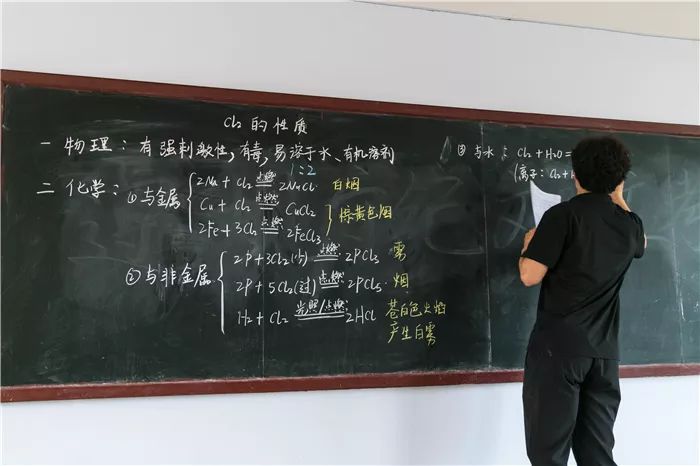 Cl₂的性质
一 物理：有强刺激性，有毒，易溶于水、有机溶剂
1:2
二 化学：
①与金属
2Na + Cl₂ 点燃 2NaCl 白烟
Cu + Cl₂ 点燃 CuCl₂
2Fe + 3Cl₂ 点燃 2FeCl₃
棕黄色烟
②与非金属
2P + 3Cl₂(少) 点燃 2PCl₃ 雾
2P + 5Cl₂(过) 点燃 2PCl₅ 烟
H₂ + Cl₂ 光照/点燃 2HCl 苍白色火焰
产生白雾
③ 与水： Cl₂ + H₂O =
(离子： Cl₂ +